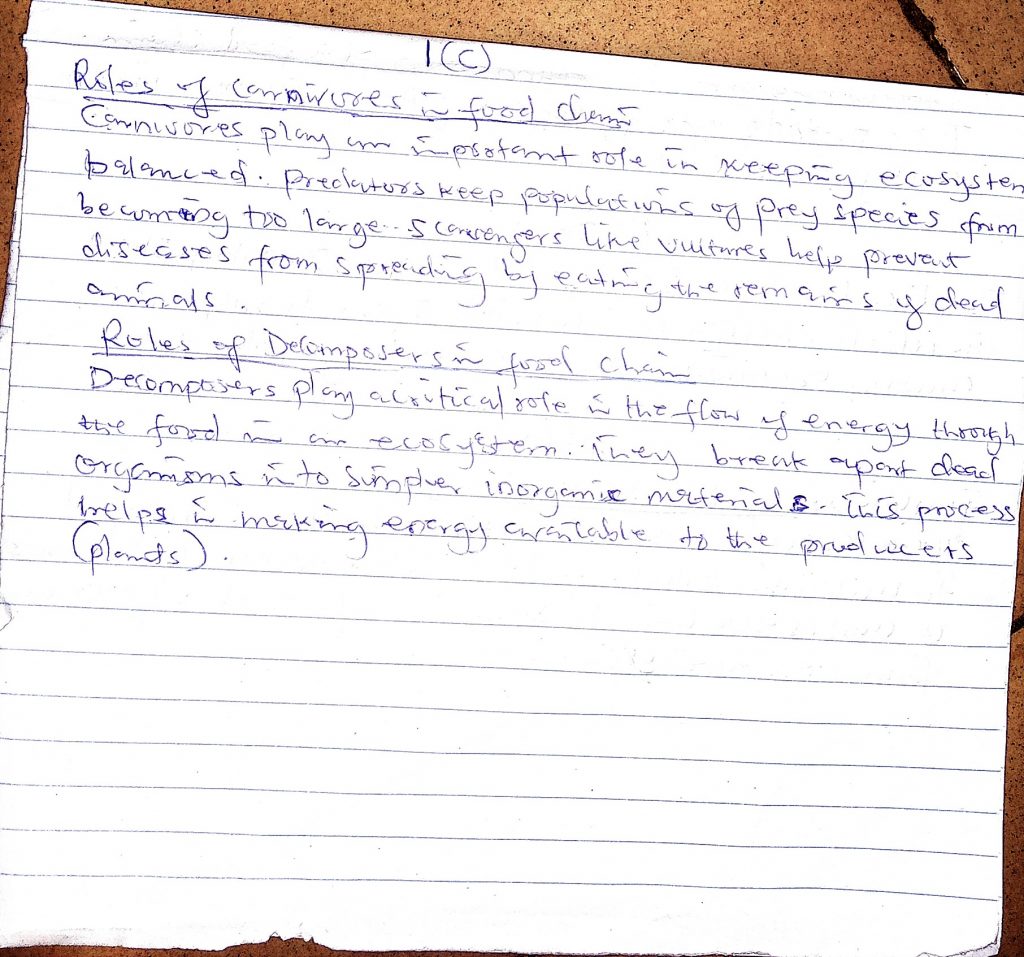 1(c)
Roles of carnivores in food chain
Carnivores play an important role in keeping ecosystem
balanced. Predators keep populations of prey species from
becoming too large. Scavengers like vultures help prevent
diseases from spreading by eating the remains of dead
animals.
Roles of Decomposers in food chain
Decomposers play a critical role in the flow of energy through
the food in an ecosystem. They break apart dead
organisms into simpler inorganic materials. This process
helps in making energy available to the producers
(plants).